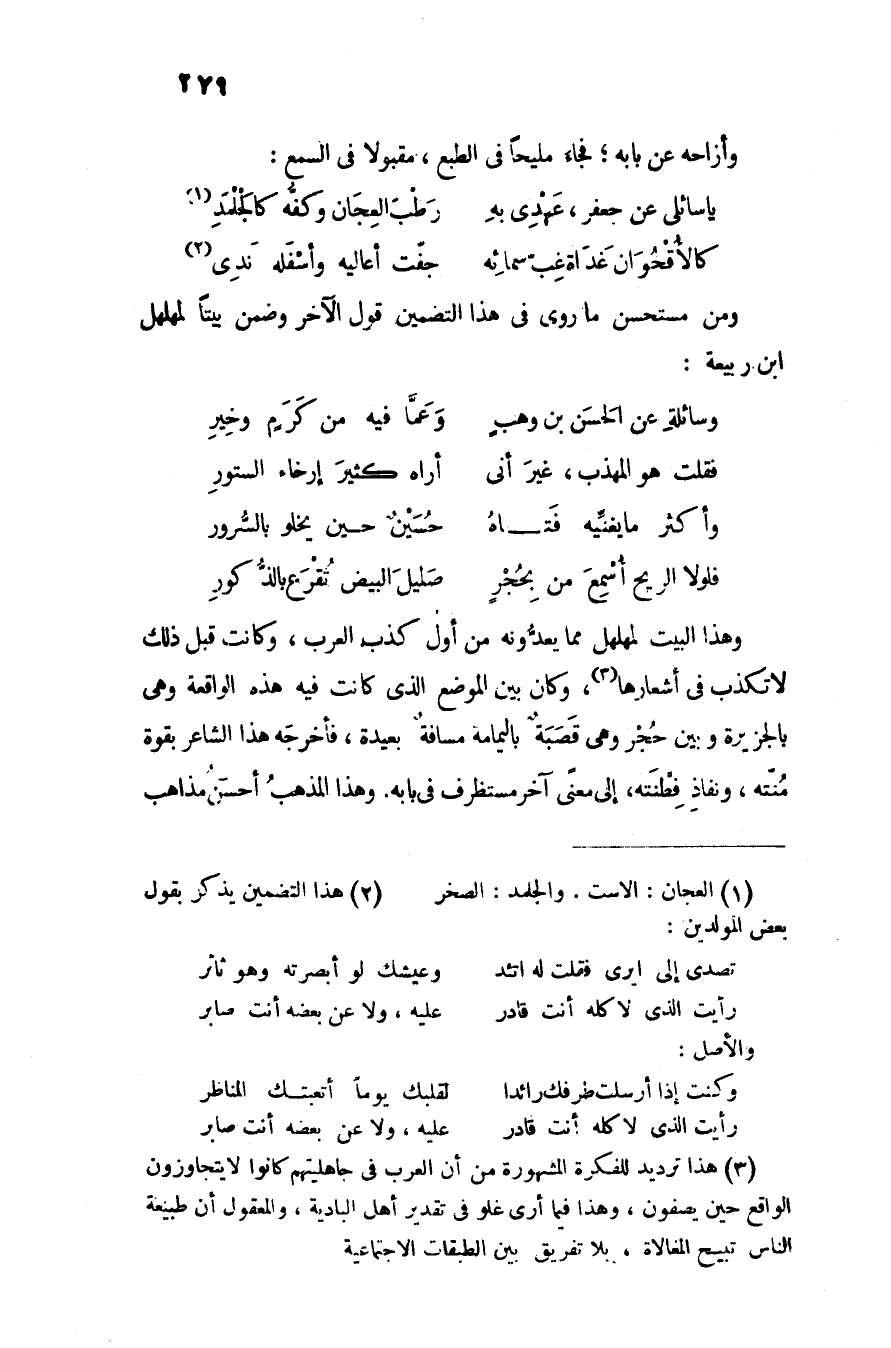 ٢٧٩
وأزاحه عن بابه ؛ فجاء مليحاً فى الطبع ، مقبولا فى السمع :
ياسائلى عن جعفر ، عَهْدِى بهِ رَطْبَ العِجَان وكفُّه كالجُلْمَدِ (١)
كالأُقْحُوَان غَدَاةَ غِبّ سمائه جفّت أعاليه وأسْفَله نَدِى (٢)
ومن مستحسن ما روى فى هذا التضمين قول الآخر وضمن بيتاً لمهلهل
ابن ربيعة :
وسائلةٍ عن الحسَن بن وهبٍ وَعَمَّا فيه من كَرَمٍ وخِيرِ
فقلت هو المهذب ، غيرَ أنى أراه كثيرَ إرخاء الستورِ
وأكثر مايغنِّيه فَتـــاهُ حُسَيْنٌ حـين يخلو بالسُّرور
فلولا الريح أُسْمِعَ من بِحُجْرٍ صَليلَ البيض تُقْرَع بالذُّكورِ
وهذا البيت لمهلهل مما يعدُّونه من أول كذب العرب ، وكانت قبل ذلك
لاتكذب فى أشعارها (٣) ، وكان بين الموضع الذى كانت فيه هذه الواقعة وهى
بالجزيرة وبين حُجْر وهى قَصَبَةٌ باليمامة مسافةٌ بعيدة ، فأخرجَه هذا الشاعر بقوة
مُنّته ، ونفاذِ فِطْنَته، إلى معنًى آخر مستظرف فى بابه. وهذا المذهبُ أحسَنُ مذاهب
(١) العجان : الاست . والجلمد : الصخر (٢) هذا التضمين يذكر بقول
بعض المولدين :
تصدى إلى ايرى فقلت له اتئد وعيشك لو أبصرته وهو ثائر
رأيت الذى لا كله أنت قادر عليه ، ولا عن بعضه أنت صابر
والأصل :
وكنت إذا أرسلت طرفك رائدا لقلبك يوماً أتعبتـك المناظر
رأيت الذى لا كله أنت قادر عليه ، ولا عن بعضه أنت صابر
(٣) هذا ترديد للفكرة المشهورة من أن العرب فى جاهليتهم كانوا لا يتجاوزون
الواقع حين يصفون ، وهذا فيما أرى غلو فى تقدير أهل البادية ، والمعقول أن طبيعة
الناس تبيح المغالاة ، بلا تفريق بين الطبقات الاجتماعية